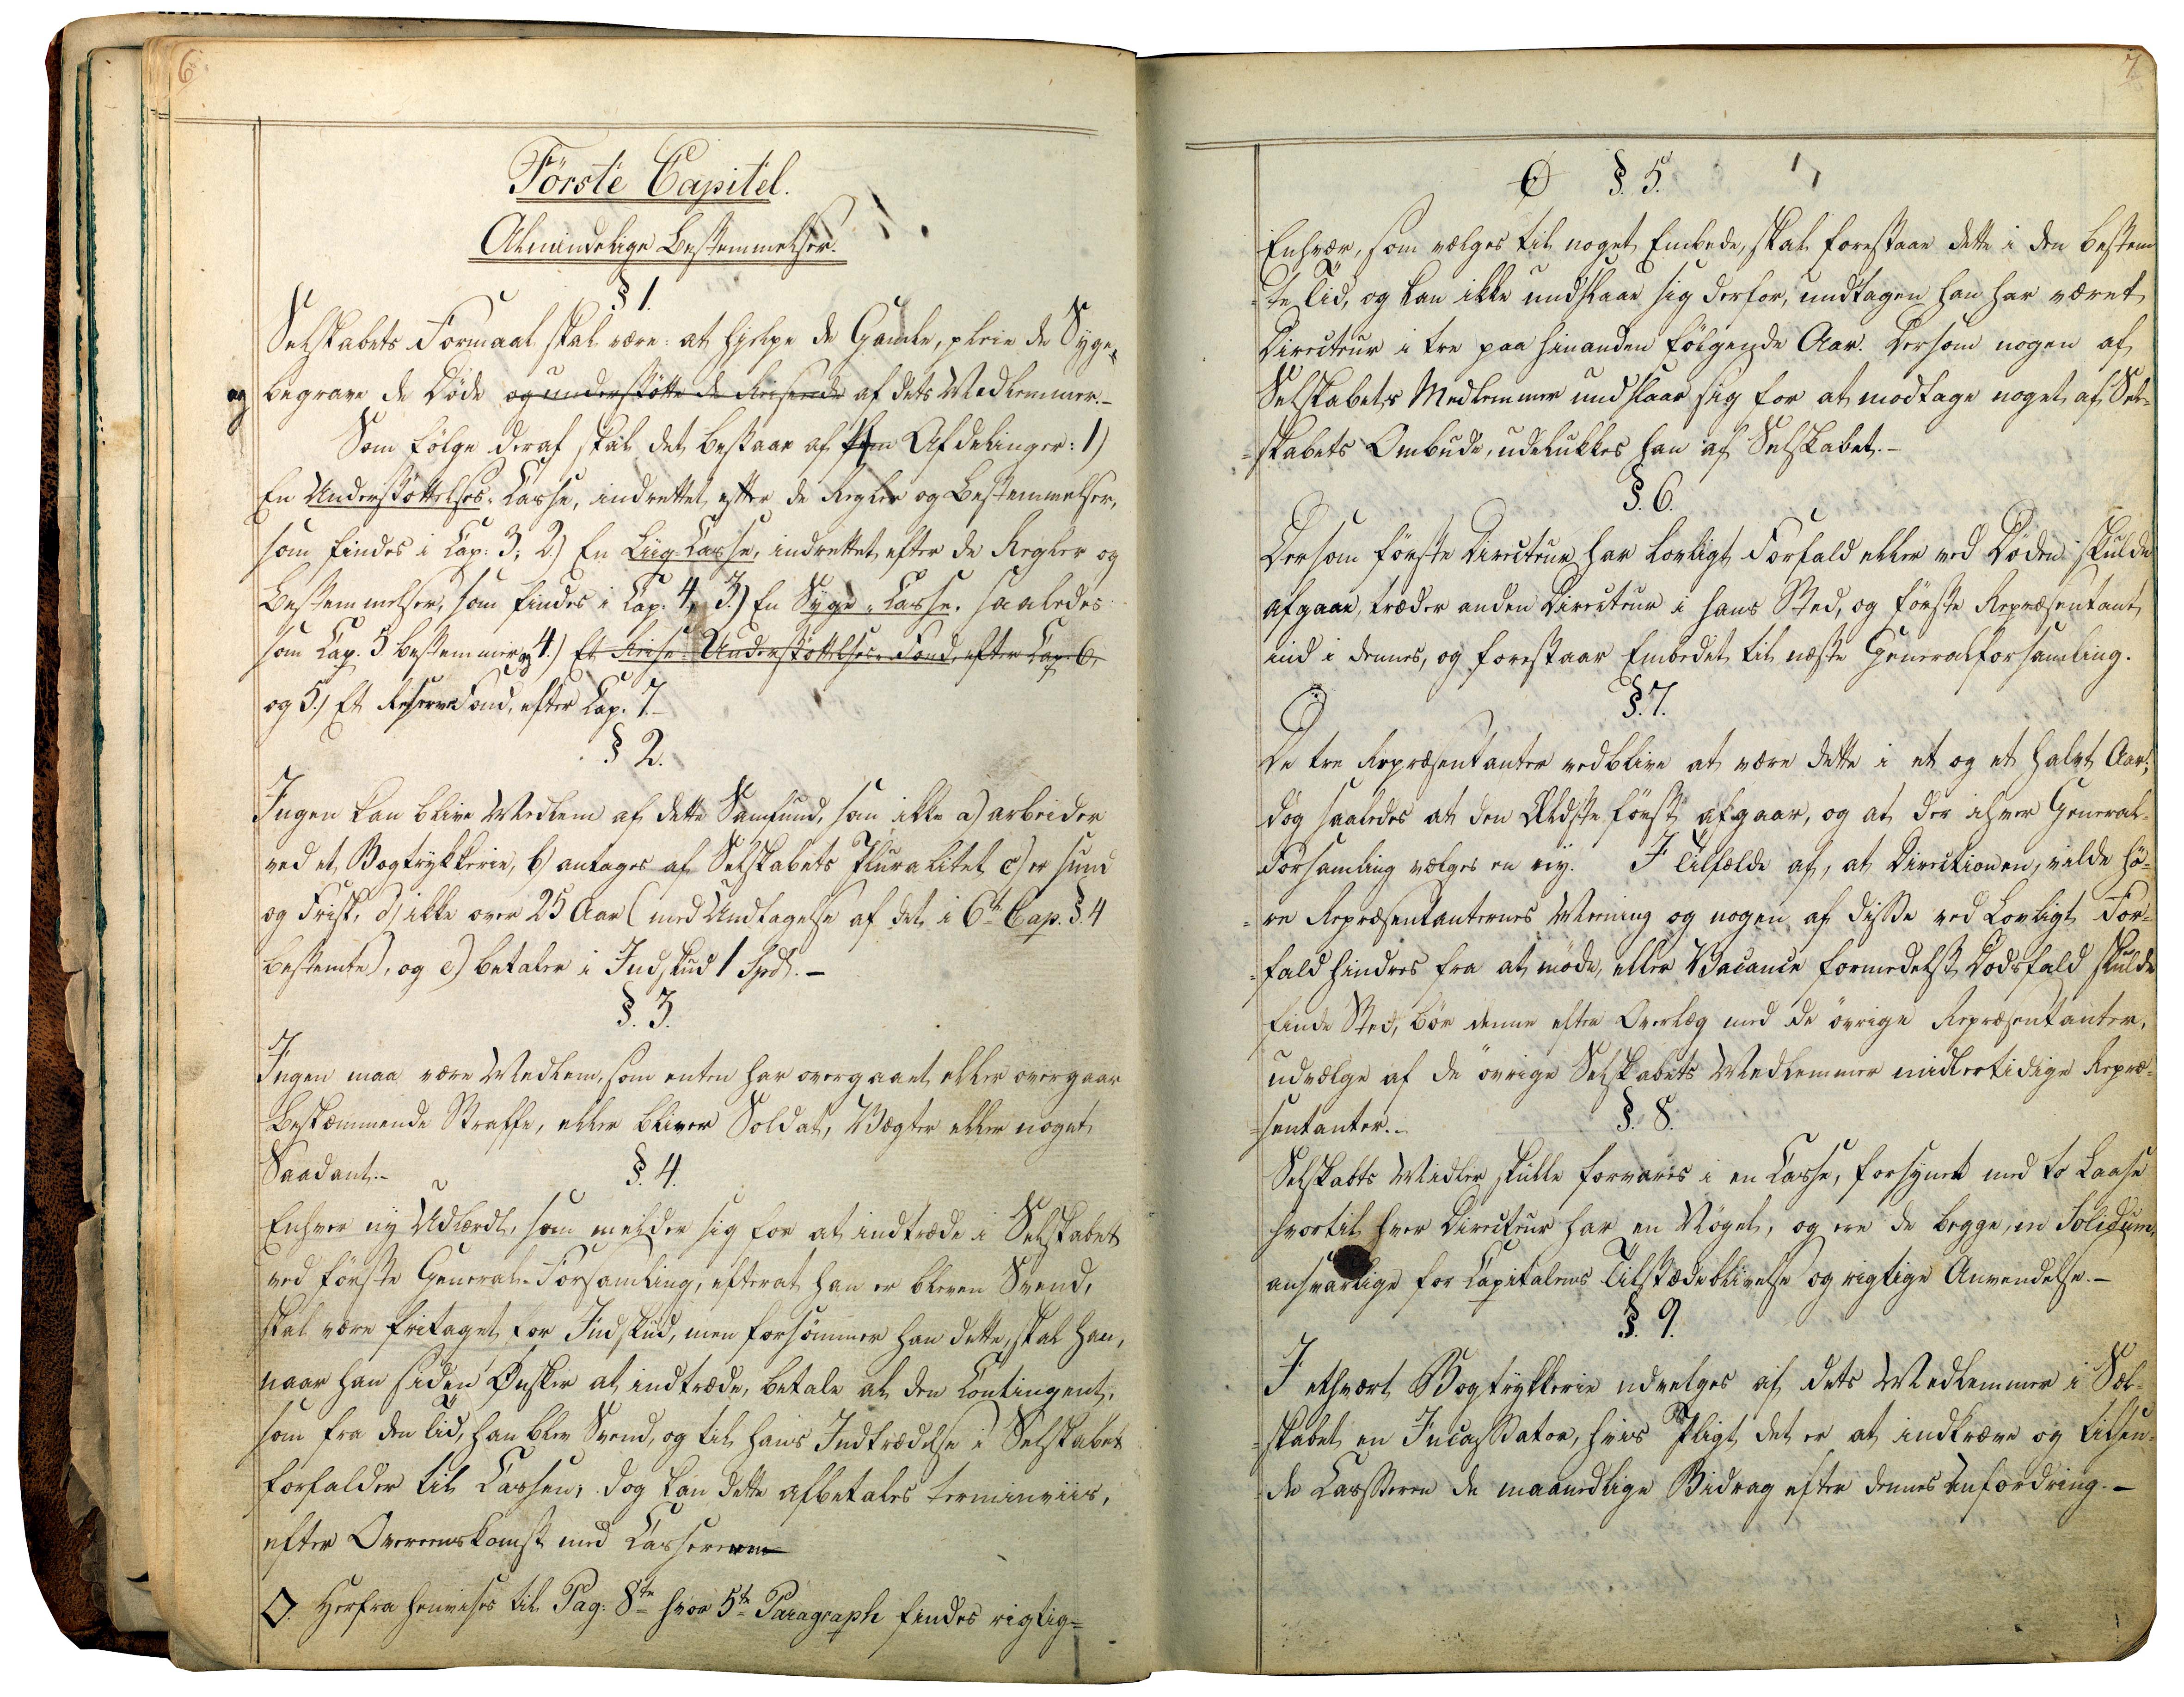 6
Förste Capitel.
Almindelige Bestemmelser.
§ 1.
Selskabets Formaal skal være: at hjelpe de Gamle, pleie de Syge,
og begrave de Døde og understøtte de Reisende af dets Medlemmer.–
Som Følge deraf skal det bestaae af Afdelinger: 1)
En Understøttelses-Casse, indrettet efter de Regler og Bestemmelser,
som findes i Cap: 3; 2.) En Liig-Casse, indrettet efter de Regler og
Bestemmelser, som findes i Cap. 4, 3.) En Syge-Casse, saaledes
som Cap. 5 bestemmer, og 4.) Et Reise-Understøttelses-Fond, efter Cap. 6,
og 5.) Et Reservefond, efter Cap. 7.–
§ 2.
Ingen kan blive Medlem af dette Samfund, som ikke a) arbeider
ved et Bogtrykkerie, b) antages af Selskabets Pluralitet c) er sund
og Frisk, d) ikke over 25 Aar (med Undtagelse af det i 6te Cap. §. 4
bestemte), og e) betaler i Indskud 1 Spd. –
§. 3.
Ingen maa være Medlem, som enten har overgaaet eller overgaar
beskæmmende Straffe, eller bliver Soldat, Vægter eller noget
Saadant.–
§. 4.
Enhver ny Udlærdt, som melder sig for at indtræde i Selskabet
ved første General-Forsamling, efterat han er bleven Svend,
skal være fritaget for Indskud, men forsømmer han dette, skal han,
naar han siden Ønsker at indtræde, betale al den Contingent,
som fra den Tid, han blev Svend, og til hans Indtrædelse i Selskabet
forfalder til Cassen; dog kan dette afbetales terminviis,
efter Overeenskomst med Casereren
O. Herfra henvises til Pag: 8te hvor 5te Paragraph findes rigtig=
7
O §. 5.
Enhver, som vælges til noget Embede, skal forestaae dette i den bestem
=te Tid, og kan ikke undslaae sig derfor, undtagen han har været
Directeur i tre paa hinanden følgende Aar. Dersom nogen af
Selskabets Medlemmer undslaar sig for at modtage noget af Sel=
=skabets Ombude, udelukkes han af Selskabet.–
§. 6.
Dersom første Directeur har lovligt Forfald eller ved Døden skulde
afgaae, træder anden Directeur i hans Sted, og første Repræsentant
ind i dennes, og forestaar Embedet til næste Generalforsamling.
§. 7.
De tre Repræsentanter vedblive at være dette i et og et halvt Aar;
dog saaledes at den Ældste først afgaar, og at der ihver General=
Forsamling vælges en ny. I Tilfælde af, at Directionen, vilde hö=
=re Repræsentanternes Mening og nogen af disse ved Lovligt For=
=fald hindres fra at møde, eller Vacance formedelst Dødsfald skulde
finde Sted, bør denne efter Overlæg med de øvrige Repræsentanter,
udvælge af de øvrige Selskabets Medlemmer midlertidige Repræ=
=sentanter.–
§. 8.
Selskabts Midler skulle forvares i en Casse, forsynet med to Laase
hvortil hver Directeur har en Nøgel, og ere de begge, in Solidum,
ansvarlige for Capitalens Tilstædeblivelse og rigtige Anvendelse.–
§. 9.
I ethvært Bogtrykkerie udvelges af dets Medlemmer i Sel=
=skabet en Incassator, hvis Pligt det er at indkræve og tilsen=
=de Cassereren de maanedlige Bidrag efter dennes Anfordring.–